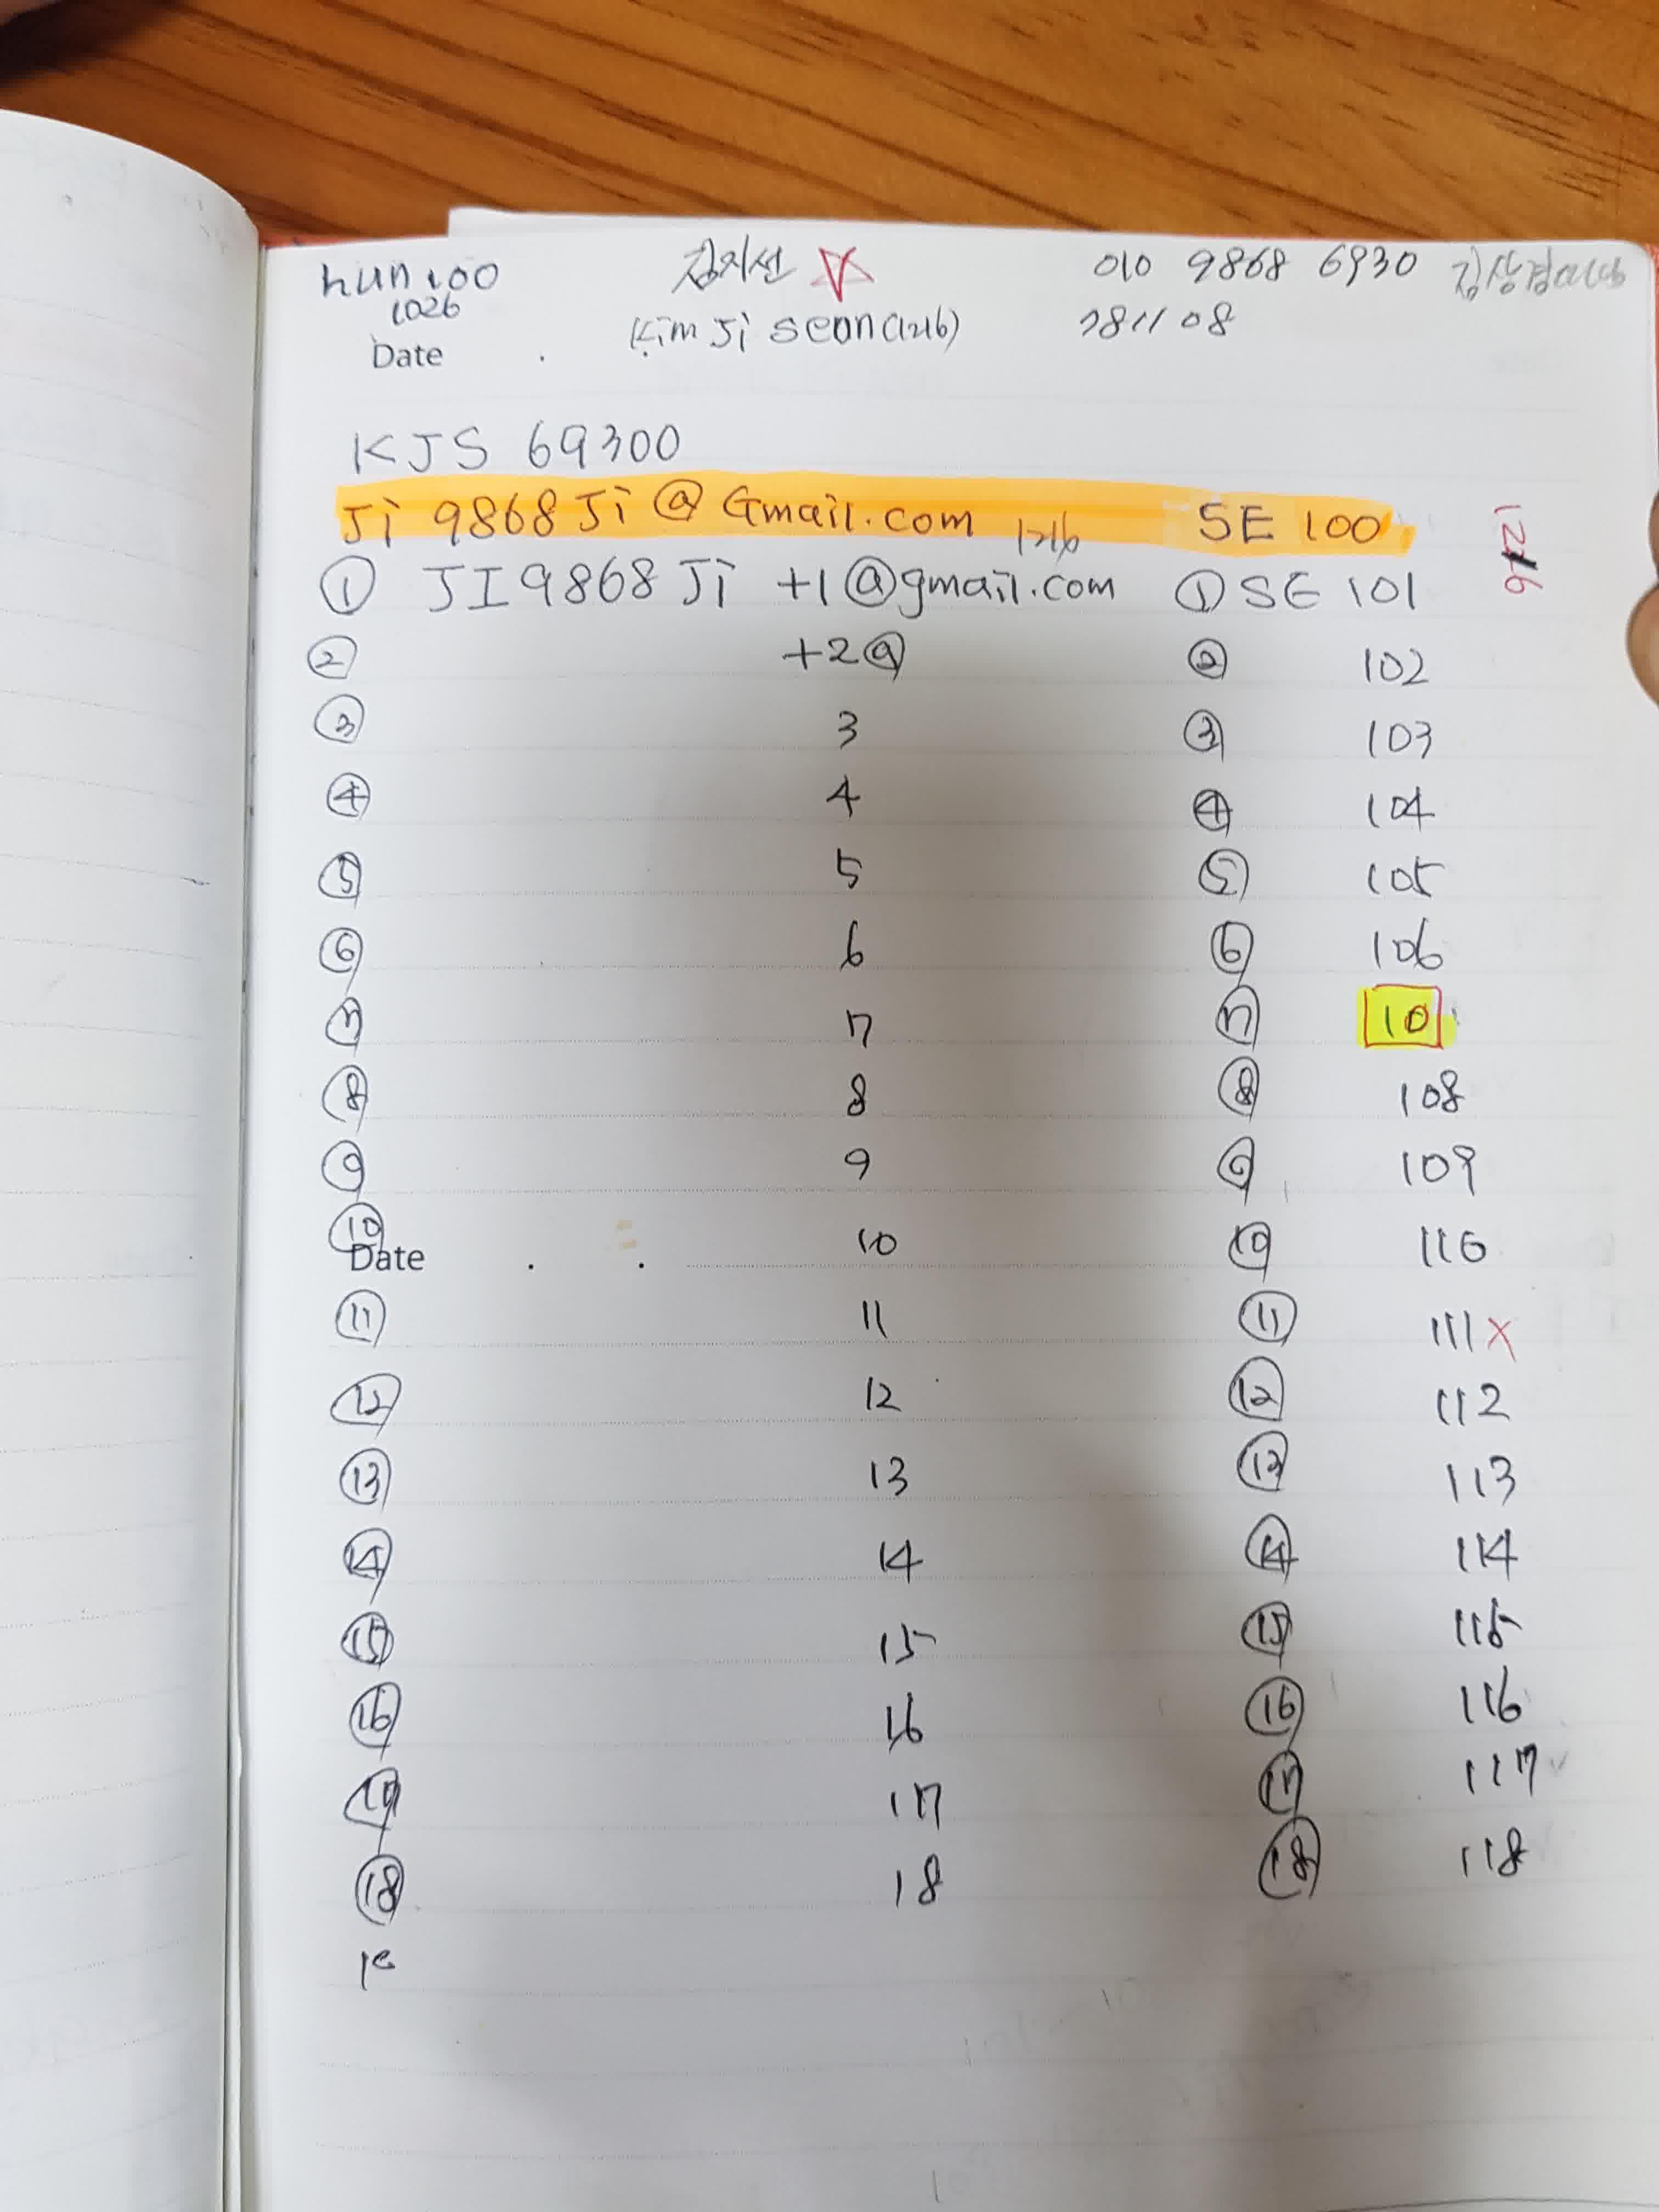 hun100 김지선 010 9868 6930
1026
Kim Ji seon(1216) 781108
Date .
KJS 69300
Ji 9868 Ji @ Gmail.com 1216 SE 100
1216
① JI9868 Ji +1@gmail.com ① SE 101
② +2@ ② 102
③ 3 ③ 103
④ 4 ④ 104
⑤ 5 ⑤ 105
⑥ 6 ⑥ 106
⑦ 7 ⑦ 10
⑧ 8 ⑧ 108
⑨ 9 ⑨ 109
⑩ 10 ⑩ 110
Date . .
⑪ 11 ⑪ 111 X
⑫ 12 ⑫ 112
⑬ 13 ⑬ 113
⑭ 14 ⑭ 114
⑮ 15 ⑮ 115
⑯ 16 ⑯ 116
⑰ 17 ⑰ 117
⑱ 18 ⑱ 118